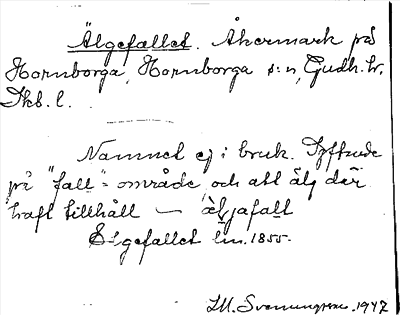 Älgefallet. Åkermark på
Hornborga, Hornborga s:n, Gudh. hr,
Skb. l.
Namnet ej i bruk. Syftade
på "fall"=område, och att älg där
haft tillhåll — äl̀jafalt
Elgefallet lm. 1855.
I.M. Svenungsson. 1947